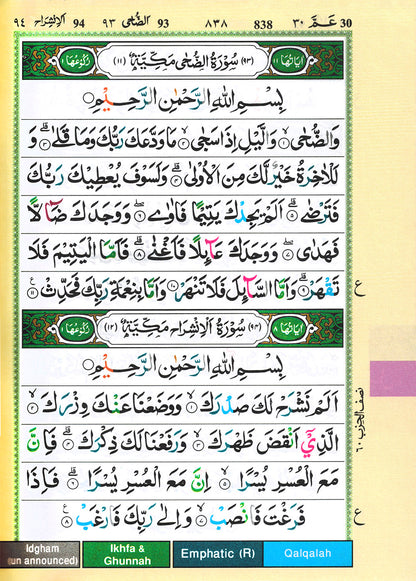 ٩٤ الانشراح 94 ٩٣ الضحى 93 ٨٣٨ 838 عمّ ٣٠ 30
اٰيَاتُهَا ١١ (٩٣) سُوْرَةُ الضُّحٰى مَكِّيَّةٌ (١١) رُكُوْعُهَا ١
بِسْمِ اللّٰهِ الرَّحْمٰنِ الرَّحِيْمِ
وَالضُّحٰى ۙ‏ ١ وَالَّيْلِ اِذَا سَجٰى ۙ‏ ٢ مَا وَدَّعَكَ رَبُّكَ وَمَا قَلٰى ؕ‏ ٣ وَ
لَلْاٰخِرَةُ خَيْرٌ لَّكَ مِنَ الْاُوْلٰى ؕ‏ ٤ وَلَسَوْفَ يُعْطِيْكَ رَبُّكَ
فَتَرْضٰى ؕ‏ ٥ اَلَمْ يَجِدْكَ يَتِيْمًا فَاٰوٰى ۪‏ ٦ وَوَجَدَكَ ضَآلًّا
فَهَدٰى ۪‏ ٧ وَوَجَدَكَ عَآئِلًا فَاَغْنٰى ؕ‏ ٨ فَاَمَّا الْيَتِيْمَ فَلَا
تَقْهَرْ ؕ‏ ٩ وَاَمَّا السَّآئِلَ فَلَا تَنْهَرْ ؕ‏ ١٠ وَاَمَّا بِنِعْمَةِ رَبِّكَ فَحَدِّثْ ١١
ع
اٰيَاتُهَا ٨ (٩٤) سُوْرَةُ الْاِنْشِرَاحِ مَكِّيَّةٌ (١٢) رُكُوْعُهَا ١
بِسْمِ اللّٰهِ الرَّحْمٰنِ الرَّحِيْمِ
اَلَمْ نَشْرَحْ لَكَ صَدْرَكَ ۙ‏ ١ وَوَضَعْنَا عَنْكَ وِزْرَكَ ۙ‏ ٢
الَّذِيْۤ اَنْقَضَ ظَهْرَكَ ۙ‏ ٣ وَرَفَعْنَا لَكَ ذِكْرَكَ ؕ‏ ٤ فَاِنَّ
مَعَ الْعُسْرِ يُسْرًا ۙ‏ ٥ اِنَّ مَعَ الْعُسْرِ يُسْرًا ؕ‏ ٦ فَاِذَا
فَرَغْتَ فَانْصَبْ ۙ‏ ٧ وَاِلٰى رَبِّكَ فَارْغَبْ ٨
ع
نصف الحزب ٦٠
Idgham
(un announced)
Ikhfa &
Ghunnah
Emphatic (R)
Qalqalah